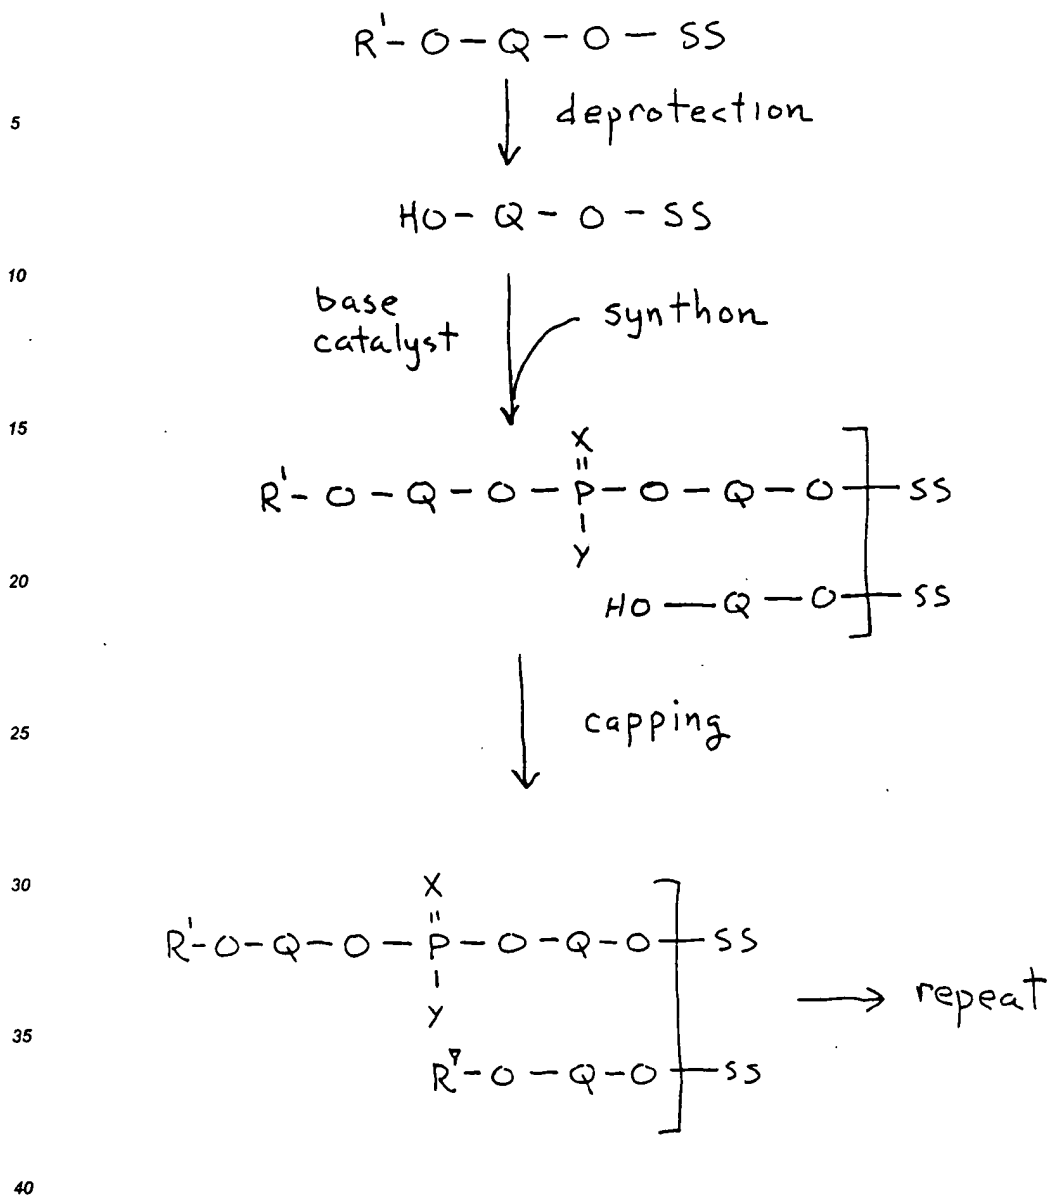 R' - O - Q - O - SS
5
deprotection
HO - Q - O - SS
10
base
catalyst
synthon
15
X
R' - O - Q - O - P - O - Q - O - SS
Y
20
HO - Q - O - SS
25
capping
30
X
R' - O - Q - O - P - O - Q - O - SS
→ repeat
Y
35
R - O - Q - O - SS
40